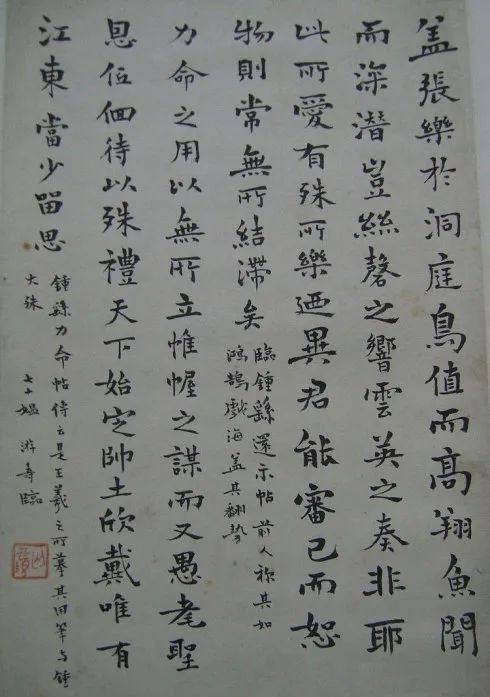 盖張樂於洞庭鳥值而高翔魚聞
而深潛豈絲磬之響雲英之奏非耶
此所愛有殊所樂廼異君能審己而恕
物則常無所結滯矣
臨鍾繇還示帖前人称其如
鴻鵠戲海盖其翻勢
力命之用以無所立惟幄之謀而又愚耄聖
恩低佪待以殊禮天下始定帥土欣戴唯有
江東當少留思
鍾繇力命帖侍云是王羲之所摹其用筆与鍾
大殊 七十媪 游寿臨